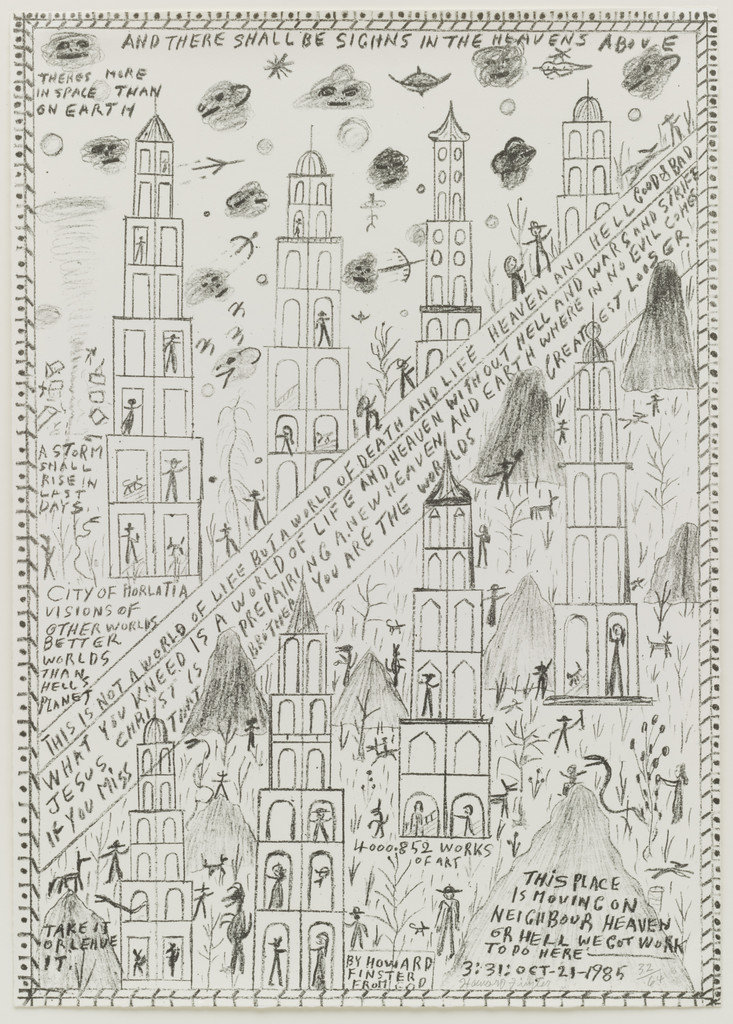 AND THERE SHALL BE SIGHNS IN THE HEAVENS ABOVE
THERES MORE
IN SPACE THAN
ON EARTH
A STORM
SHALL
RISE IN
LAST
DAYS.
CITY OF HORLATIA
VISIONS OF
OTHER WORLDS
BETTER
WORLDS
THAN
HELLS
PLANET
THIS IS NOT A WORLD OF LIFE BUT A WORLD OF DEATH AND LIFE HEAVEN AND HELL GOOD & BAD
WHAT YOU KNEED IS A WORLD OF LIFE AND HEAVEN WITHOUT HELL AND WARS AND STRIFE
JESUS CHRIST IS PREPAIRING A NEW HEAVEN AND EARTH WHERE IN NO EVIL COMES
IF YOU MISS THAT BROTHER YOU ARE THE WORLDS GREATEST LOOSER.
4000.852 WORKS
OF ART
THIS PLACE
IS MOVING ON
NEIGHBOUR HEAVEN
OR HELL WE GOT WORK
TO DO HERE
3:31: OCT-21-1985
32/64
Howard Finster
TAKE IT
OR LEAVE
IT.
BY HOWARD
FINSTER
FROM GOD